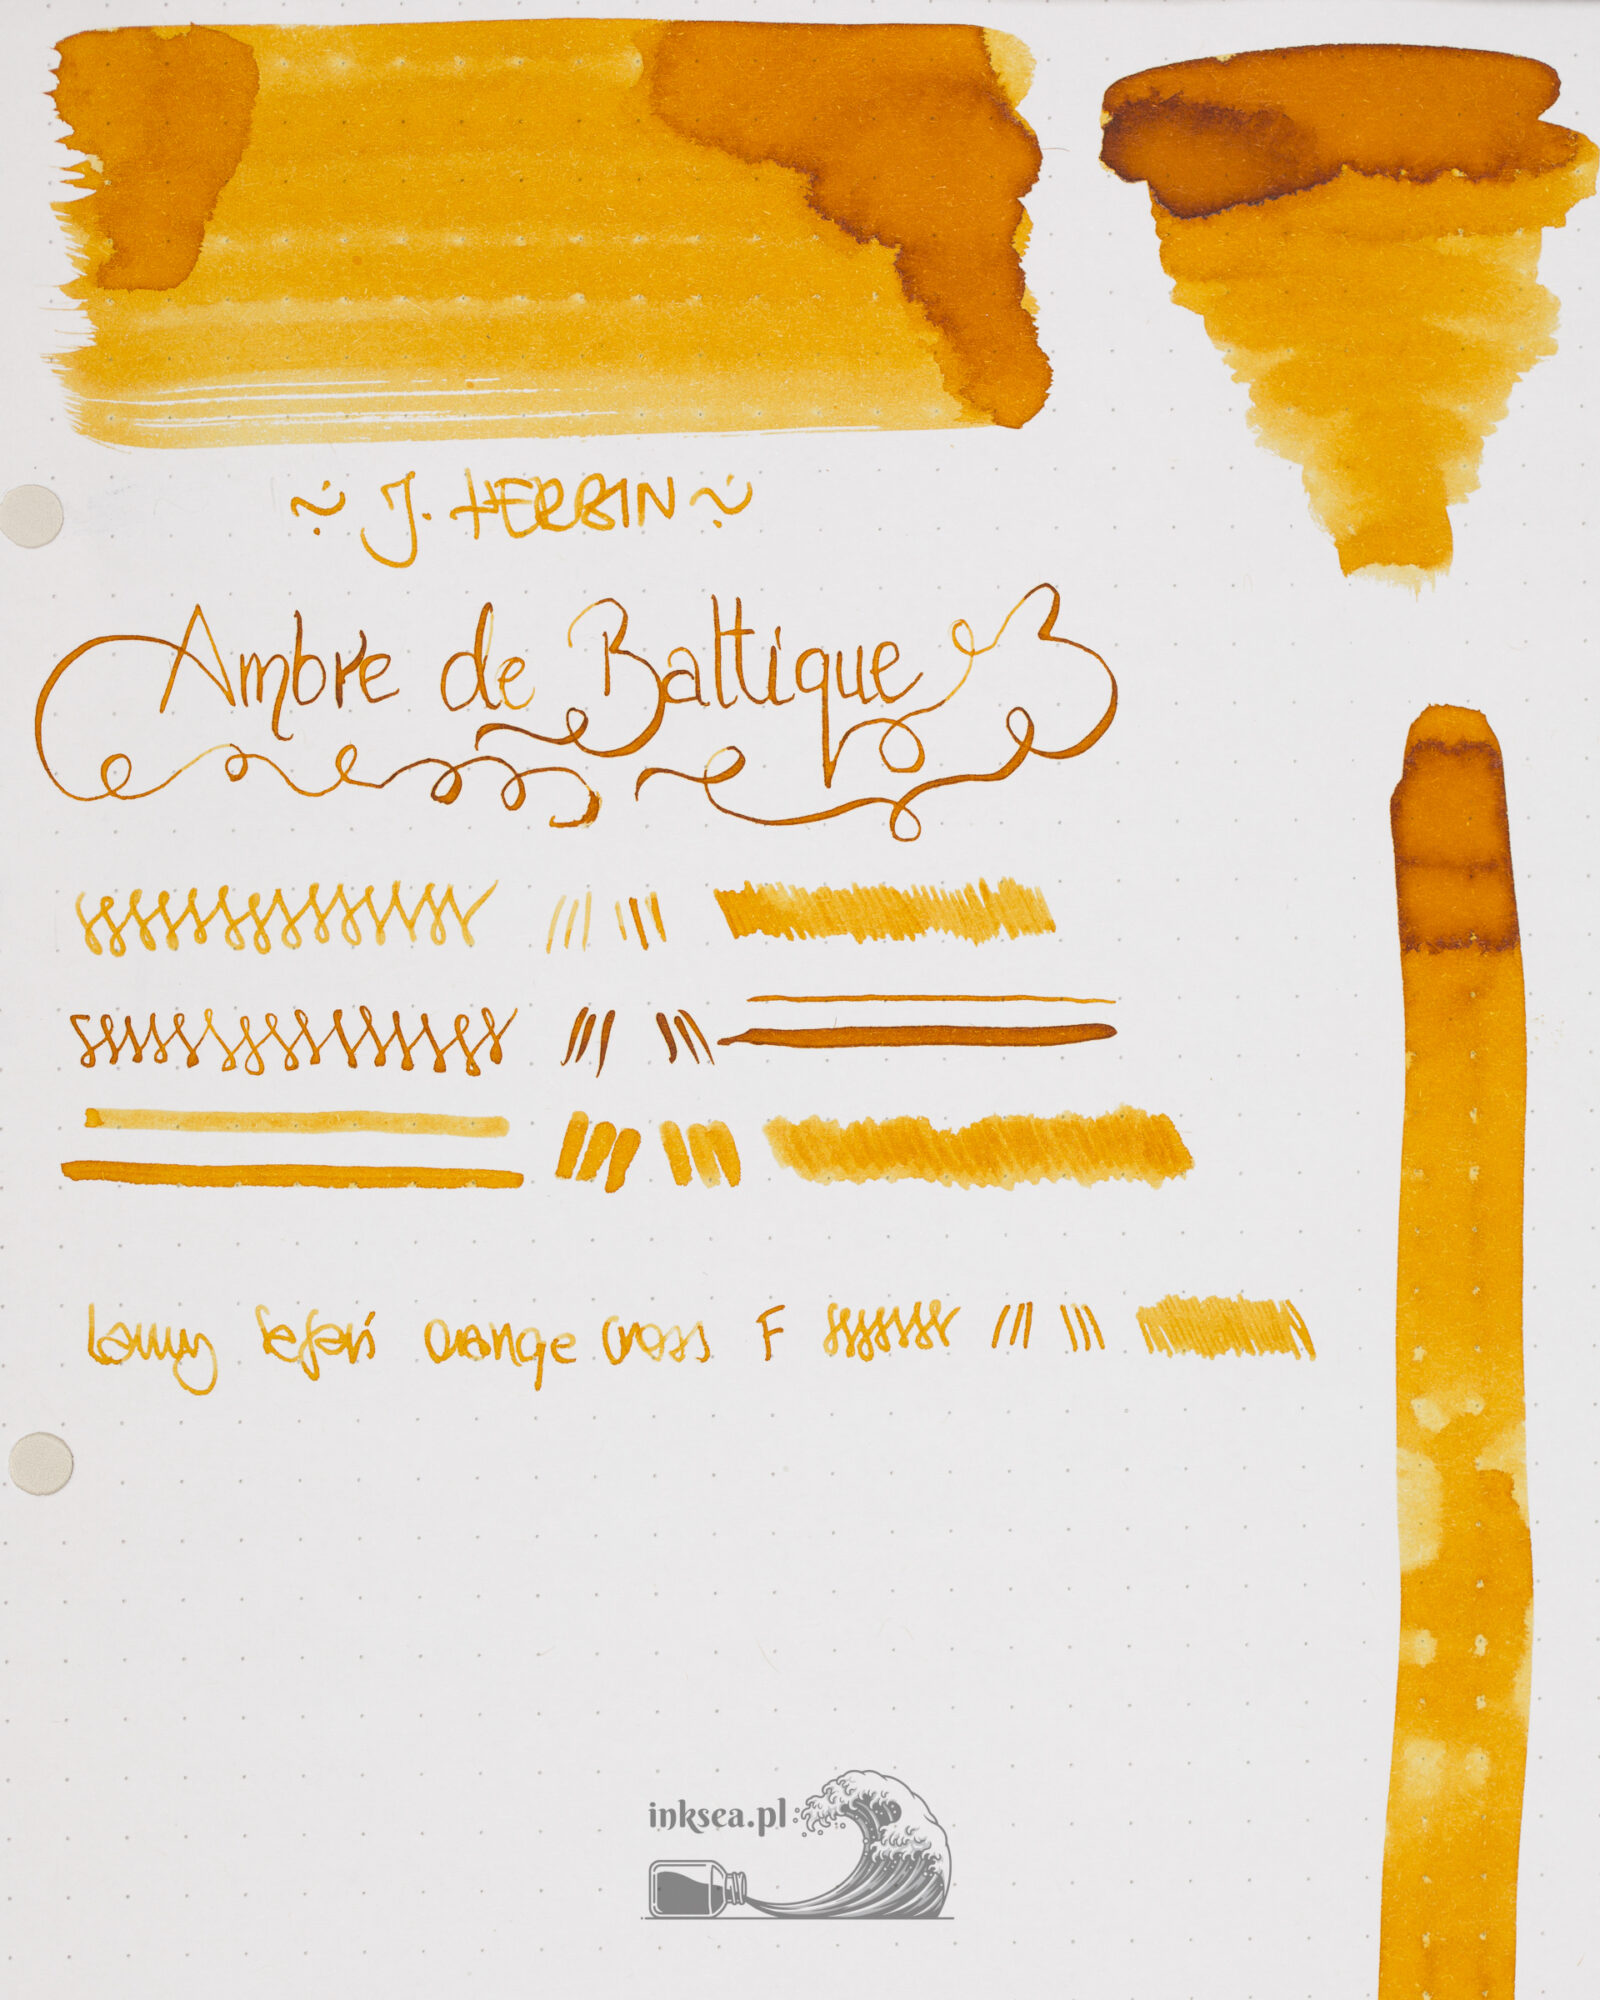 ~ J. HERBIN ~
Ambre de Baltique
Lamy Safari Orange Cross F
inksea.pl